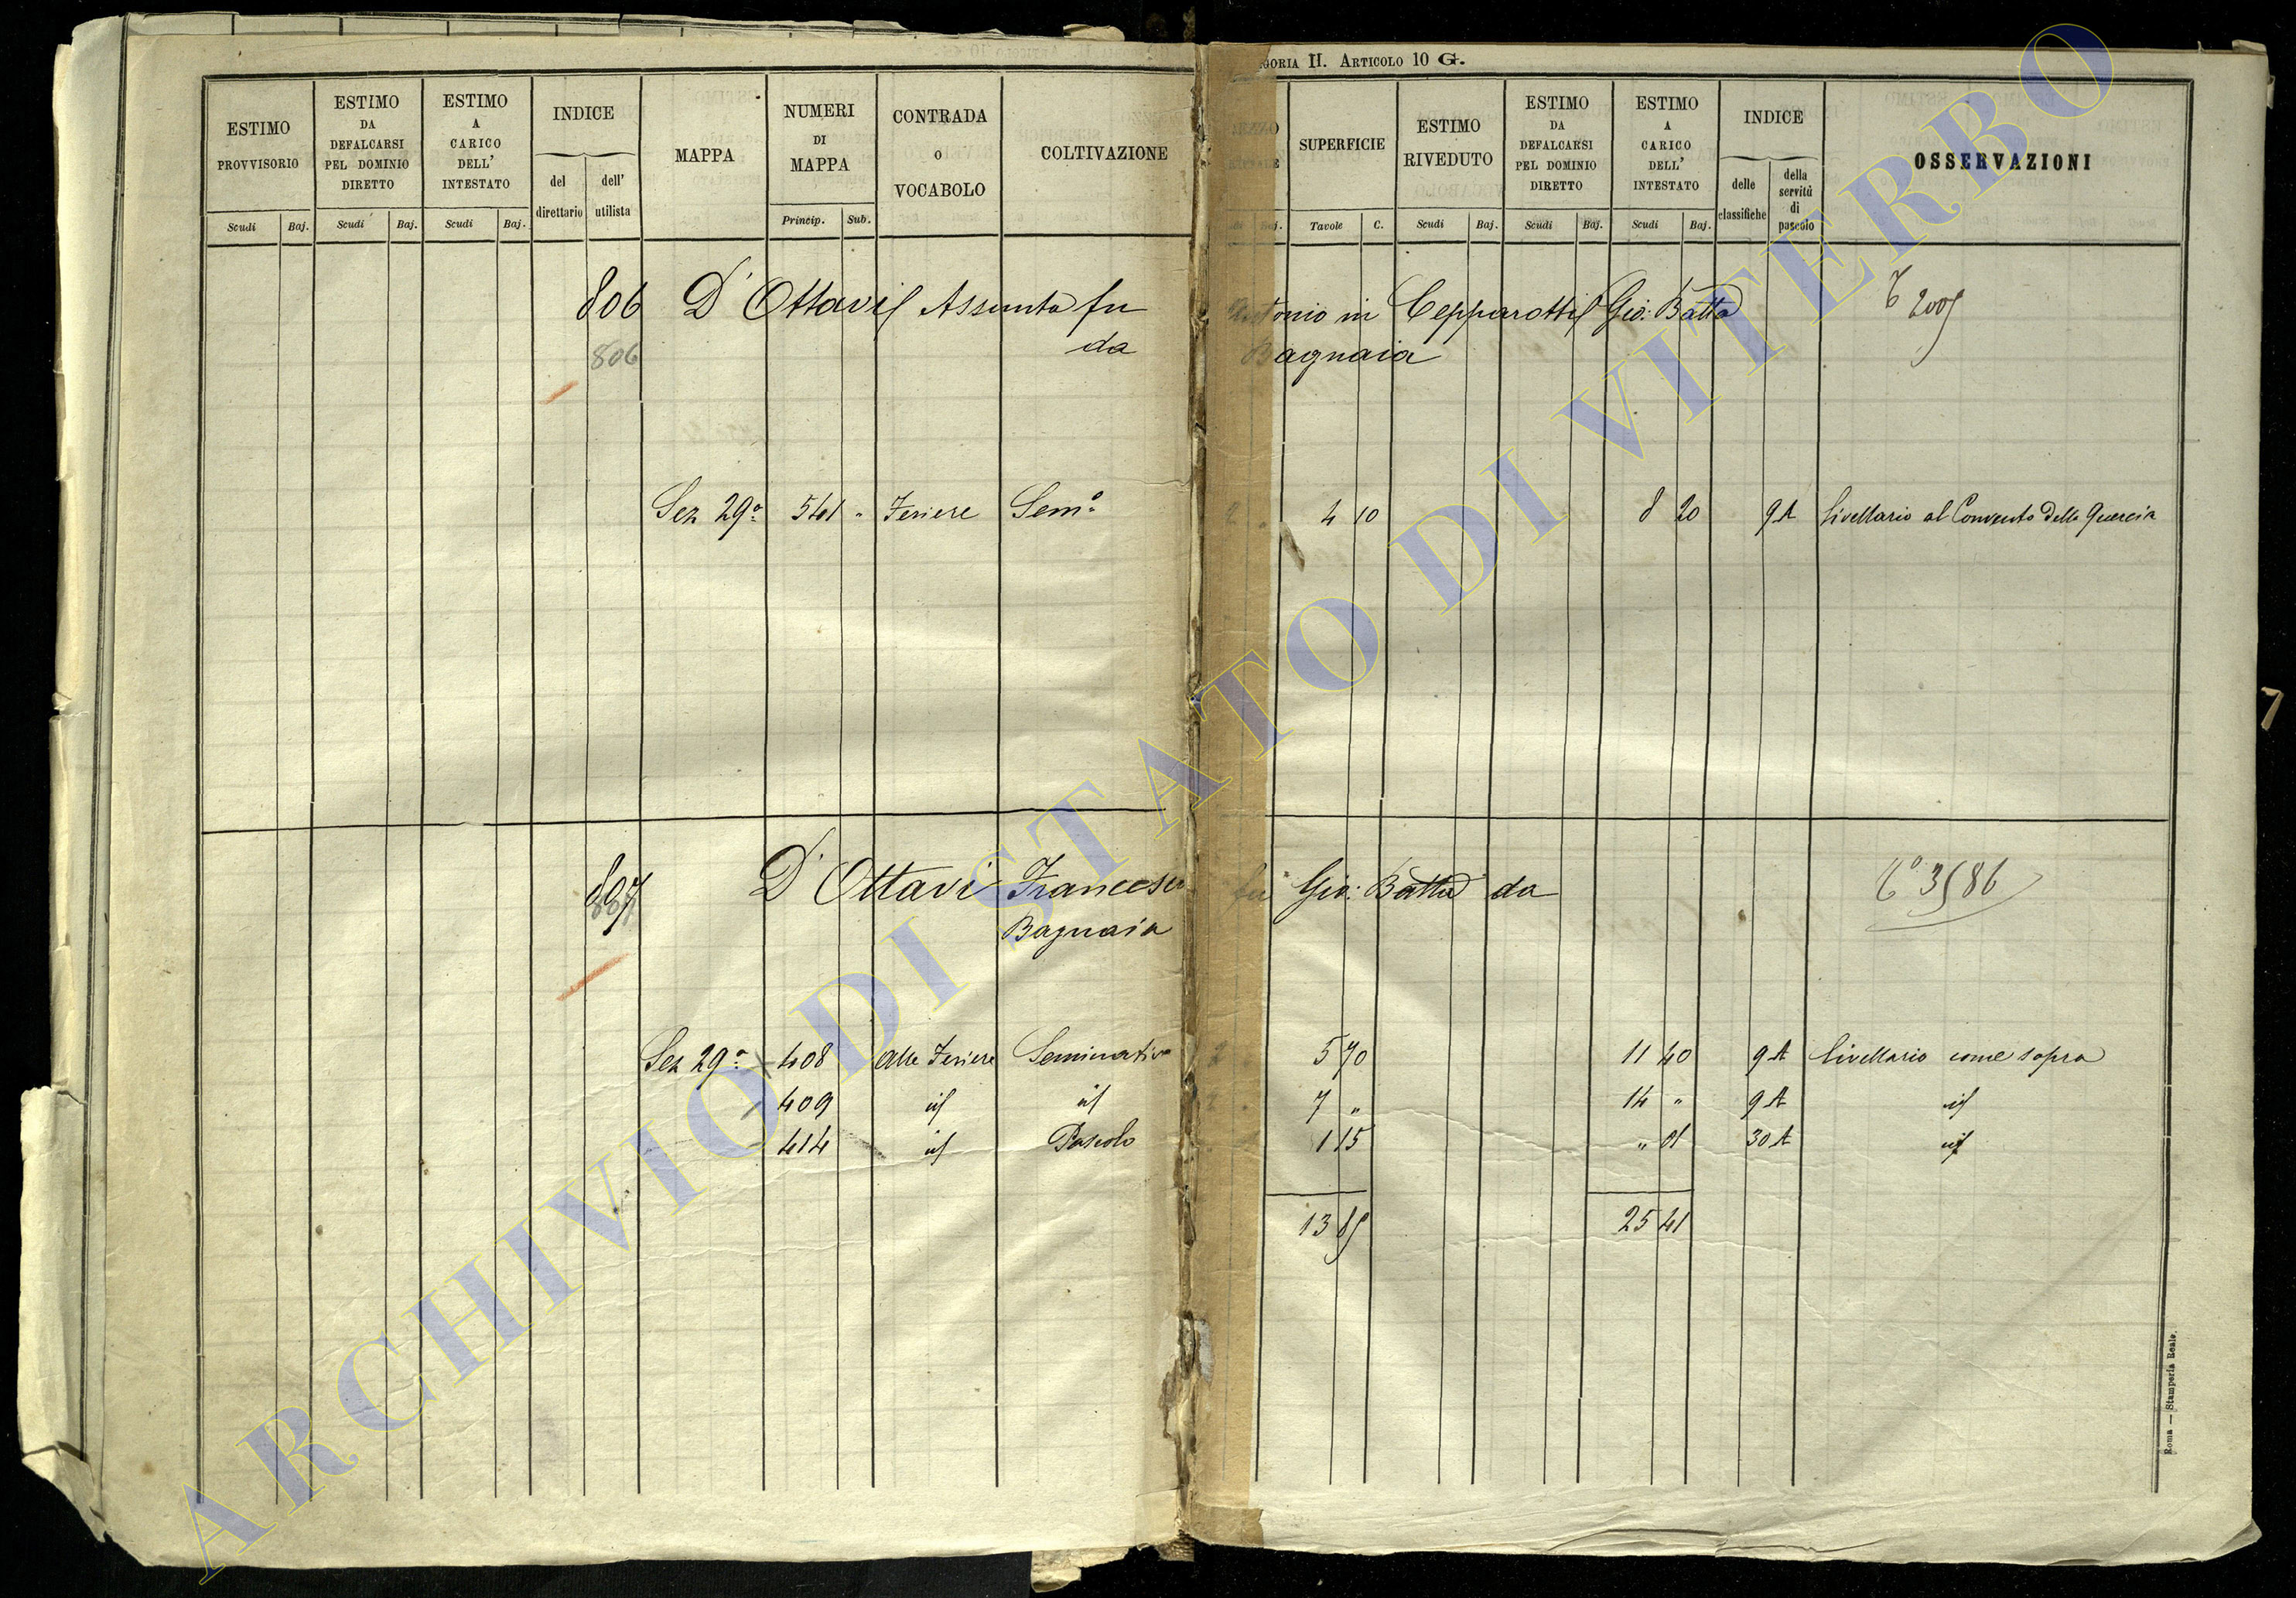 GORIA II. ARTICOLO 10 G.
ESTIMO PROVVISORIO
Scudi Baj.
ESTIMO DA DEFALCARSI PEL DOMINIO DIRETTO
Scudi Baj.
ESTIMO A CARICO DELL' INTESTATO
Scudi Baj.
INDICE
del direttario
dell' utilista
MAPPA
NUMERI DI MAPPA
Princip. Sub.
CONTRADA O VOCABOLO
COLTIVAZIONE
SUPERFICIE
Tavole C.
ESTIMO RIVEDUTO
Scudi Baj.
ESTIMO DA DEFALCARSI PEL DOMINIO DIRETTO
Scudi Baj.
ESTIMO A CARICO DELL' INTESTATO
Scudi Baj.
INDICE
delle classifiche
della servitù di pascolo
OSSERVAZIONI
806 D'Ottavij Assunta fu Antonio in Cepparottij Gio: Batta
806 da Bagnaia
Sez 29a 541 " Feriere Sem.o 2 4 10 8 20 9 A livellario al Convento della Quercia
807 D'Ottavi Francesco fu Gio: Batta da
Bagnaia
Sez 29a 408 alle Feriere Seminativo 2 5 70 11 40 9 A livellario come sopra
409 id id 2 7 " 14 " 9 A id
414 id Pascolo 1 15 " 01 30 A id
13 85 25 41
Roma — Stamperia Reale.
ARCHIVIO DI STATO DI VITERBO